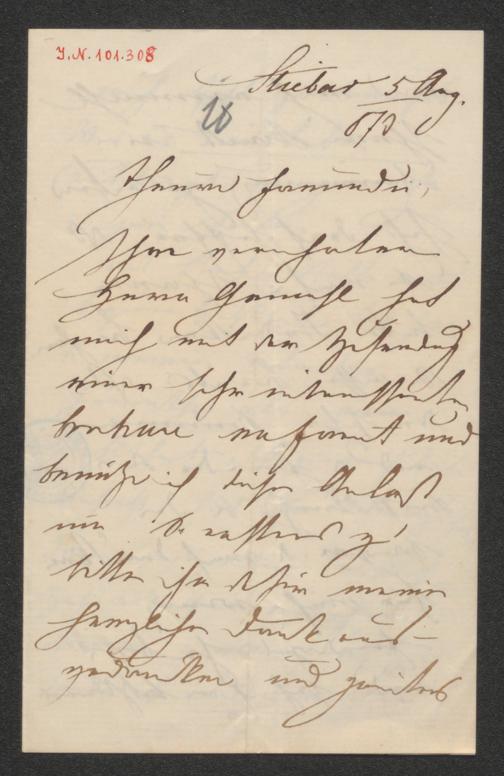 I.N. 101.308
Stiebar 5 Aug.
18
873
Theure Freundin,
Ihr verehrter
Herr Gemahl hat
mich mit der Zusendung
einer sehr interessanten
Brochure erfreut und
benütze ich diesen Anlaß
um
bitten ihm dafür meinen
herzlichen Dank aus-
zudrücken und zweitens